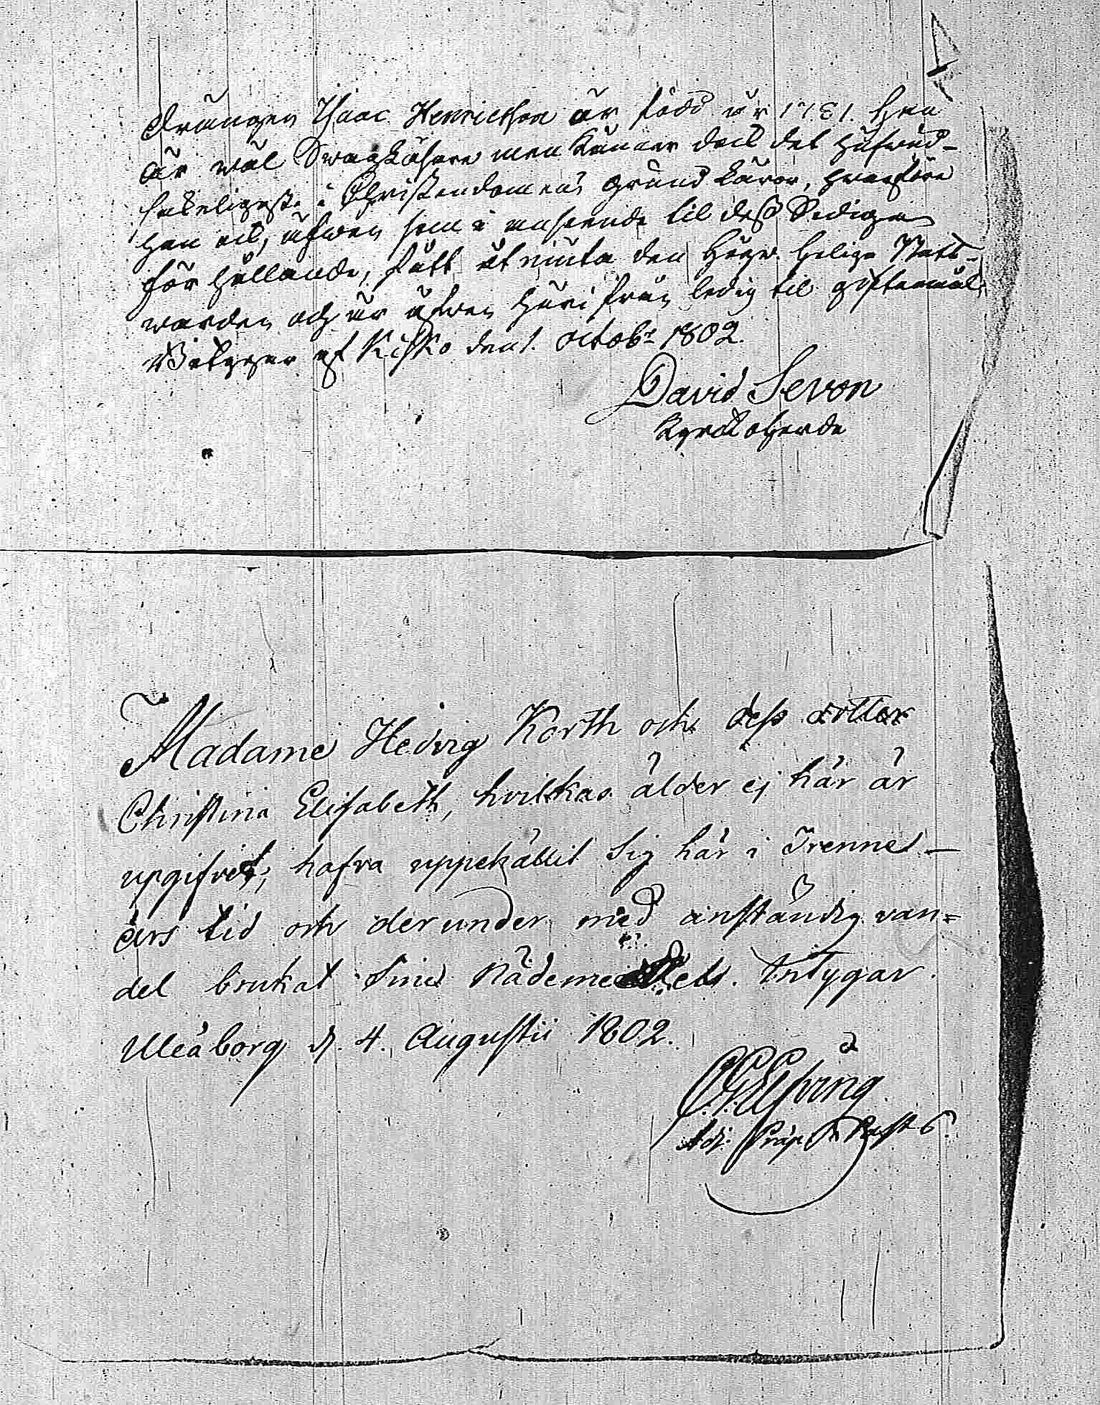 Drängen Isaac Henricsson är född år 1781. Han
är wäl Swagläsare men känner dock det hufwud-
sakeligaste i Christendomens grund läror, hwarföre
han ock, äfwen som i anseende til dess Sediga
förhållande, fått åtniuta den Högw. Helige Natt-
warden och är äfwen häri från ledig til giftermål.
Betygar af Kisko den 1. octobr 1802.
David Sevon
Kyrckoherde
Madame Hedvig Korth och dess dotter
Christina Elisabeth, hvilkas ålder ej här är
upgifvet, hafva uppehållit sig här i Trenne
års tid och derunder med anständig van=
del brukat Sine Nådemedel. Betygar
Uleåborg d. 4. Augustii 1802.
Elfving
Adj.